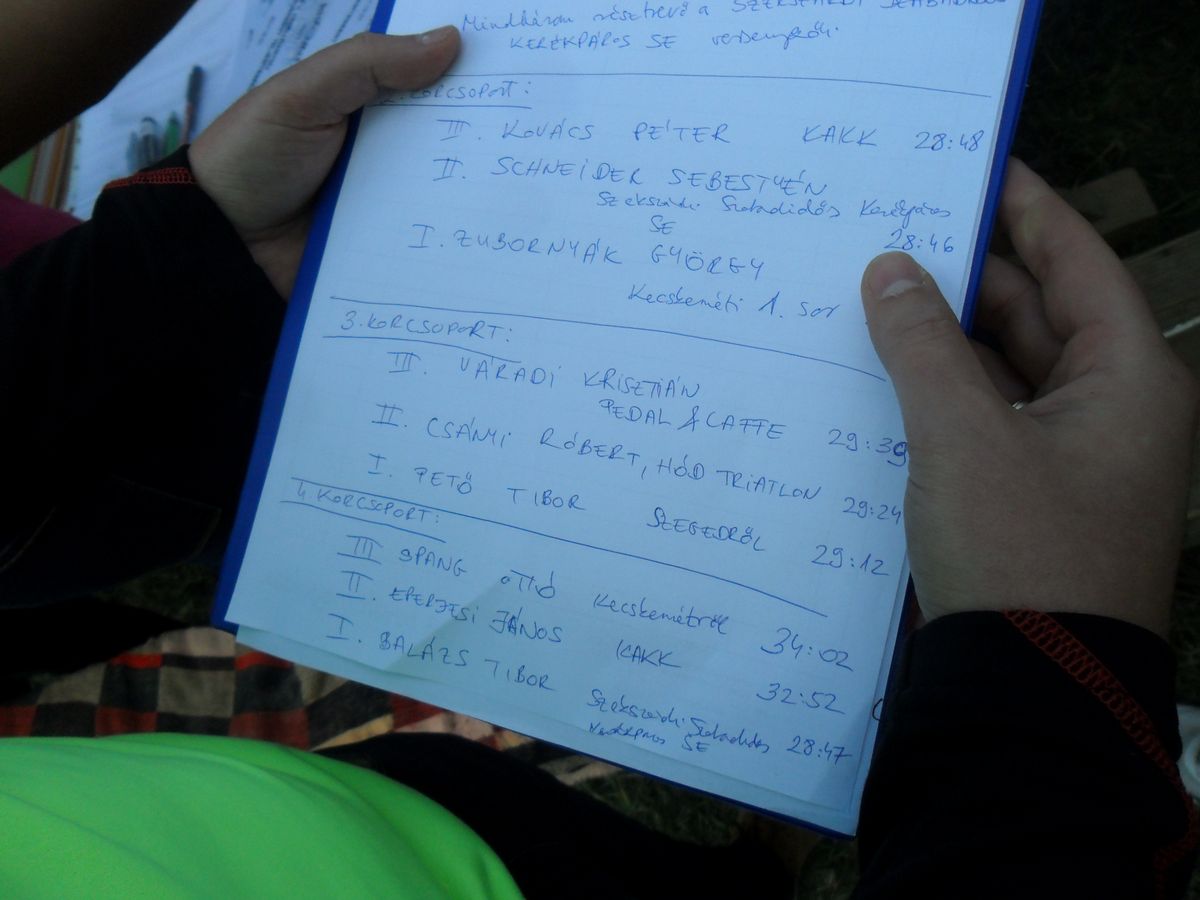 Mindhárom résztvevő a SZEKSZÁRDI SZABADIDŐS
KERÉKPÁROS SE versenyzői.
2. KORCSOPORT:
III. KOVÁCS PÉTER KAKK 28:48
II. SCHNEIDER SEBESTYÉN
Szekszárdi Szabadidős Kerékpáros
SE 28:46
I. ZUBORNYÁK GYÖRGY
Kecskeméti 1. sor
3. KORCSOPORT:
III. VÁRADI KRISZTIÁN
PEDAL & CAFFE 29:39
II. CSÁNYI RÓBERT, HÓD TRIATLON 29:24
I. PETŐ TIBOR SZEGEDRŐL 29:12
4. KORCSOPORT:
III SPANG OTTÓ Kecskemétről 34:02
II. EPERJESI JÁNOS KAKK 32:52
I. BALÁZS TIBOR Szekszárdi Szabadidős
Kerékpáros SE 28:47